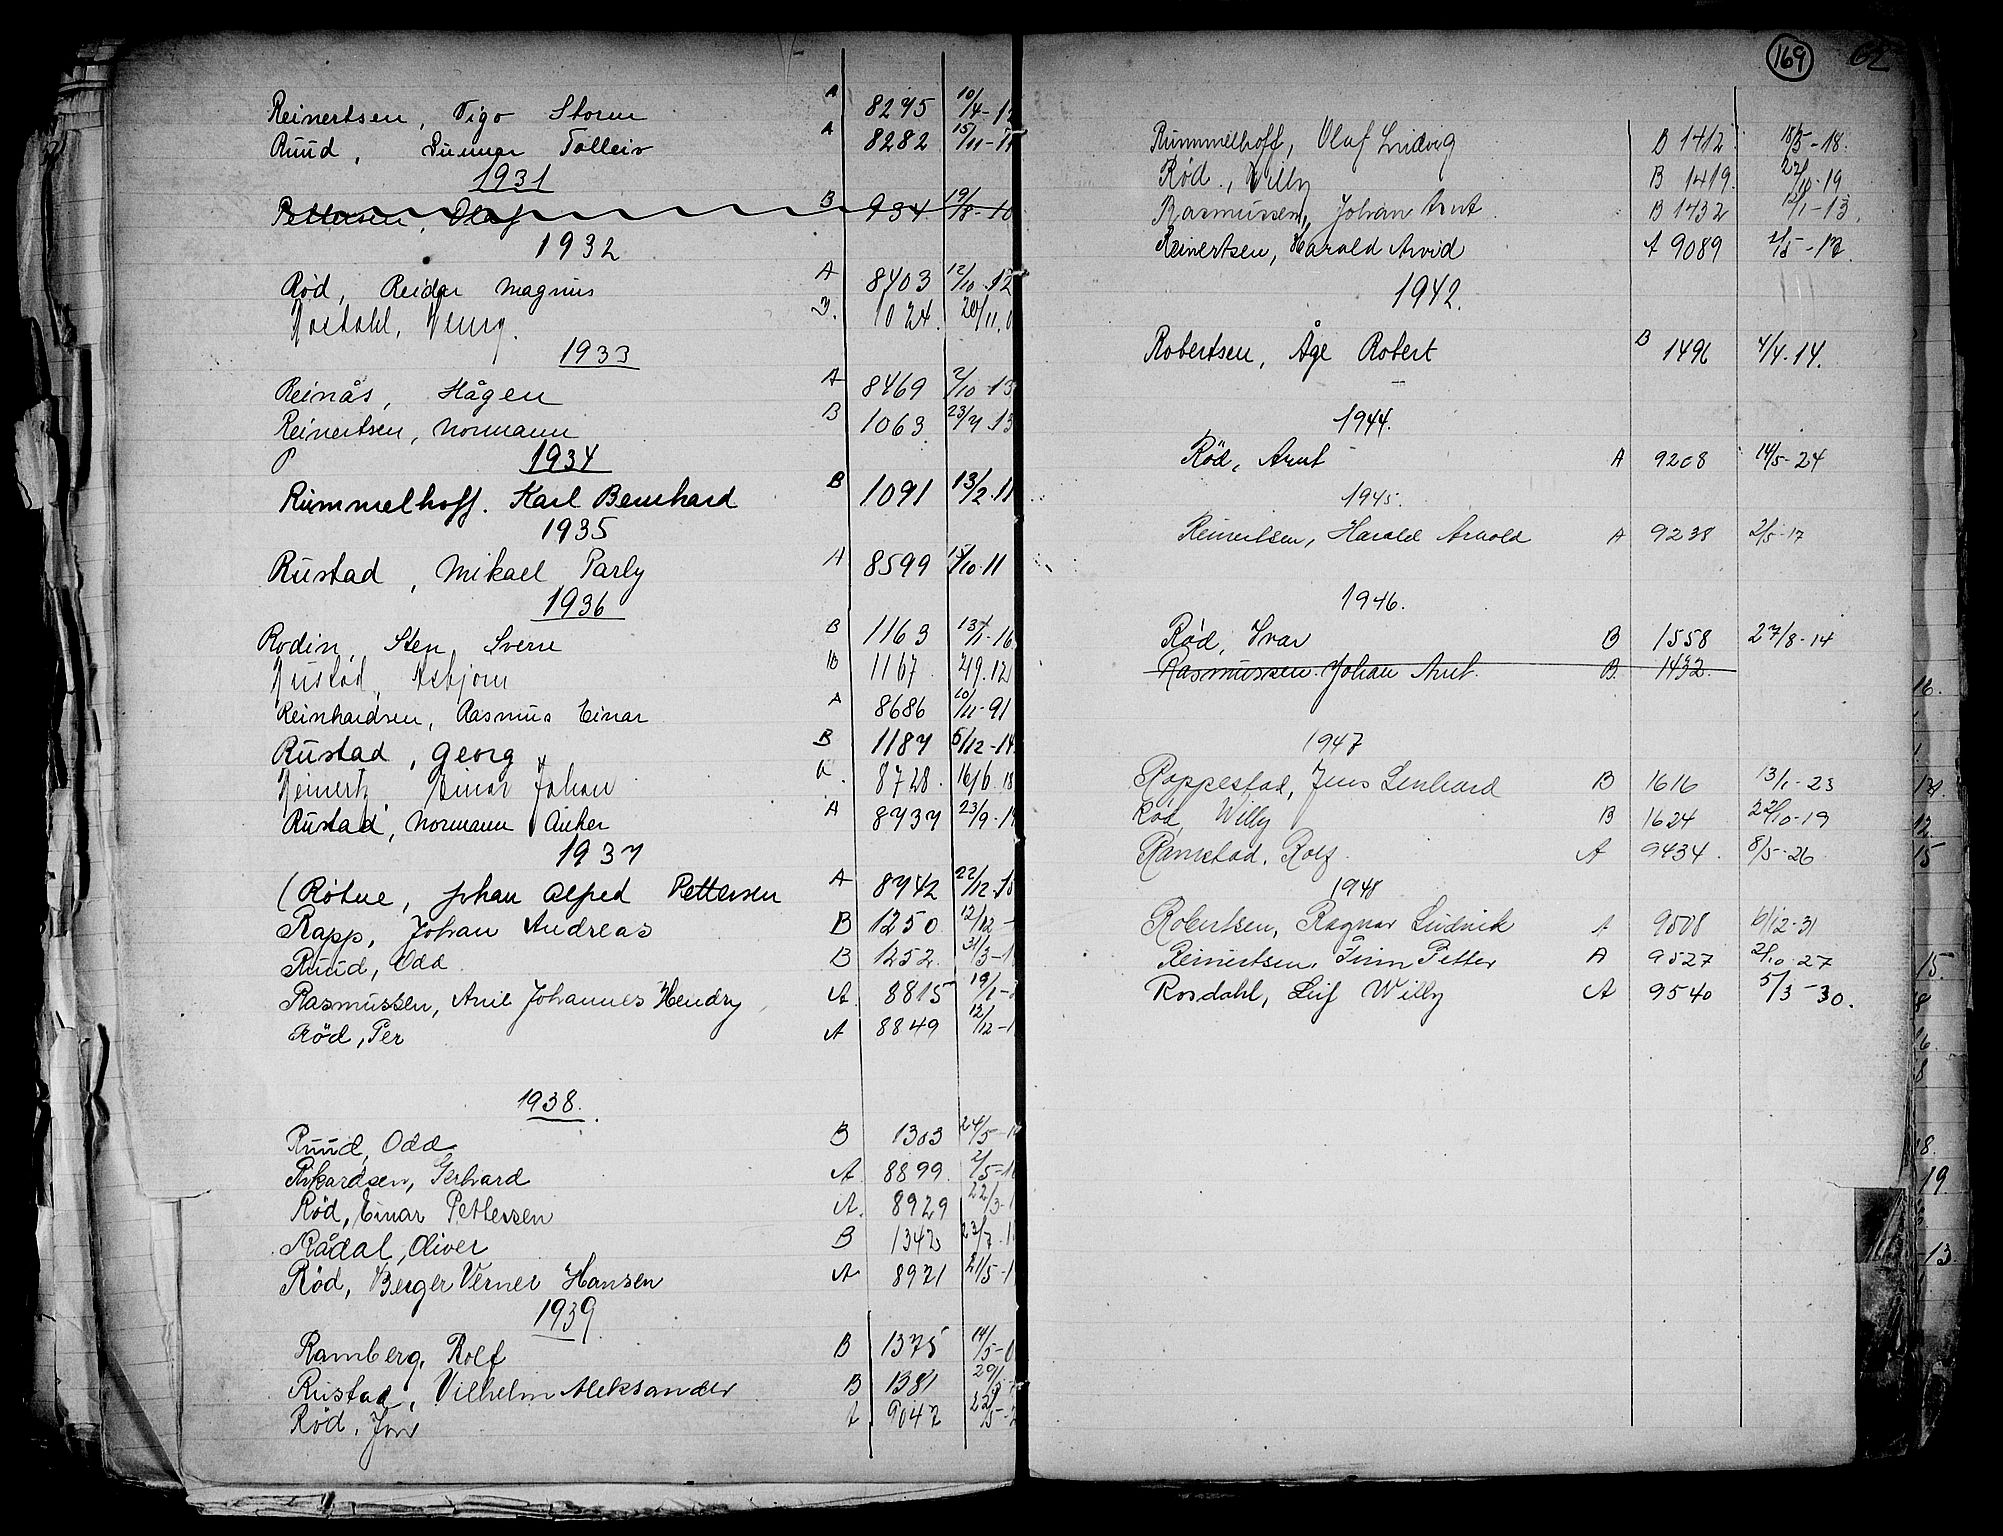 Reinertsen, Vigo Storm A 8275 10/4-1
Ruud, Gunnar Tolleiv A 8282 15/11-1
1931
Pettersen, Olaf B 934 19/8-10
1932
Rød, Reidar Magnus A 8403 12/10.12
Rostahl, Henry. B. 1024. 20/11.0
1933
Reinås, Hågen A 8469 2/10.13
Reinertsen, Normann B 1063 23/7.13
1934
Rummelhoff. Karl Bernhard B 1091 13/2.11
1935
Rustad, Mikael Parly A 8599 15/10.11
1936
Rodin, Sten Sverre B 1163 13/1-16
Rustad, Asbjørn B 1167 4/9.12
Reinhardsen, Rasmus Einar A 8686 10/11-91
Rustad, Georg B 1187 5/12-14
Reinertz, Einar Johan A. 8728. 16/6.18
Rustad, Normann Anker A 8737 23/9-1
1937
(Rötne, Johan Alfred Pettersen A 8742 22/12.
Rapp, Johan Andreas B 1250 12/12-
Ruud, Odd B 1252. 31/3-1
Rasmussen, Arne Johannes Hendry A. 8815 19/1-
Rød, Per A 8849 12/12-1
1938.
Ruud, Odd B 1303 24/5-1
Rikardsen, Gerhard A 8899. 2/5-1
Rød, Einar Pettersen A. 8929 22/3-1
Rådal, Oliver B 1342 23/7.1
Rød, Berger Verner Hansen A 8921 21/5-1
1939
Ramberg, Rolf B 1375 14/5-0
Rustad, Vilhelm Aleksander B 1381
Rød, A 9047
169
62
Rummelhoff, Olaf Ludvig B 1412 18/5-18.
Rød, Willy B 1419. 22/10-19
Rasmussen, Johan Arnt B 1432 /1-13.
Reinertsen, Harald Arvid A 9089 2/5-17.
1942.
Robertsen, Åge Robert B 1496 4/4.14.
1944.
Rød, Arnt A 9208 14/5-24
1945.
Reinertsen, Harald Arnold A 9238 2/5-17
1946.
Rød, Ivar B 1558 27/8-14
Rasmussen. Johan Arnt. B. 1432.
1947
Rappestad, Jens Lenhard B 1616 13/1-23
Rød, Willy B 1624 22/10-19
Ramstad, Rolf. A 9434. 8/5-26
1948
Robertsen, Ragnar Ludvik A 9508 6/12-31
Reinertsen, Finn Petter A 9527 2/10-27
Rosdahl, Leif Willy A 9540 5/3-30.